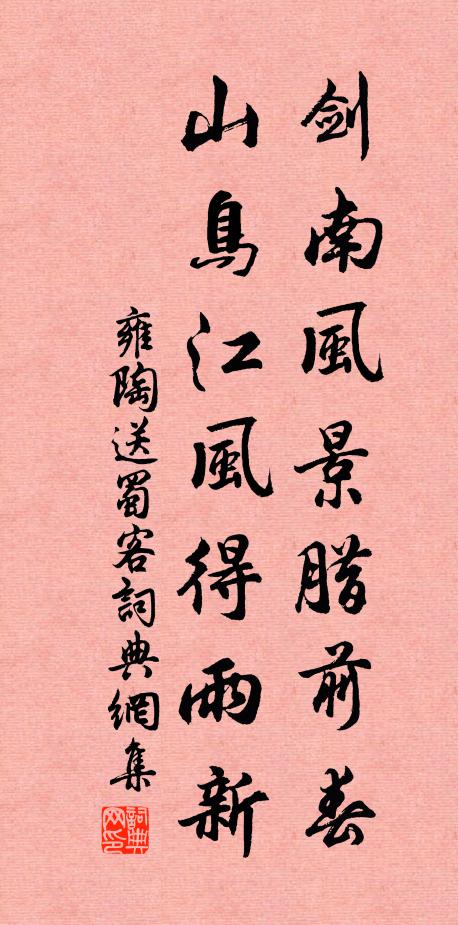 剑南風景腊前春
山鳥江風得雨新
雍陶送蜀客詞典網集
詞典网印